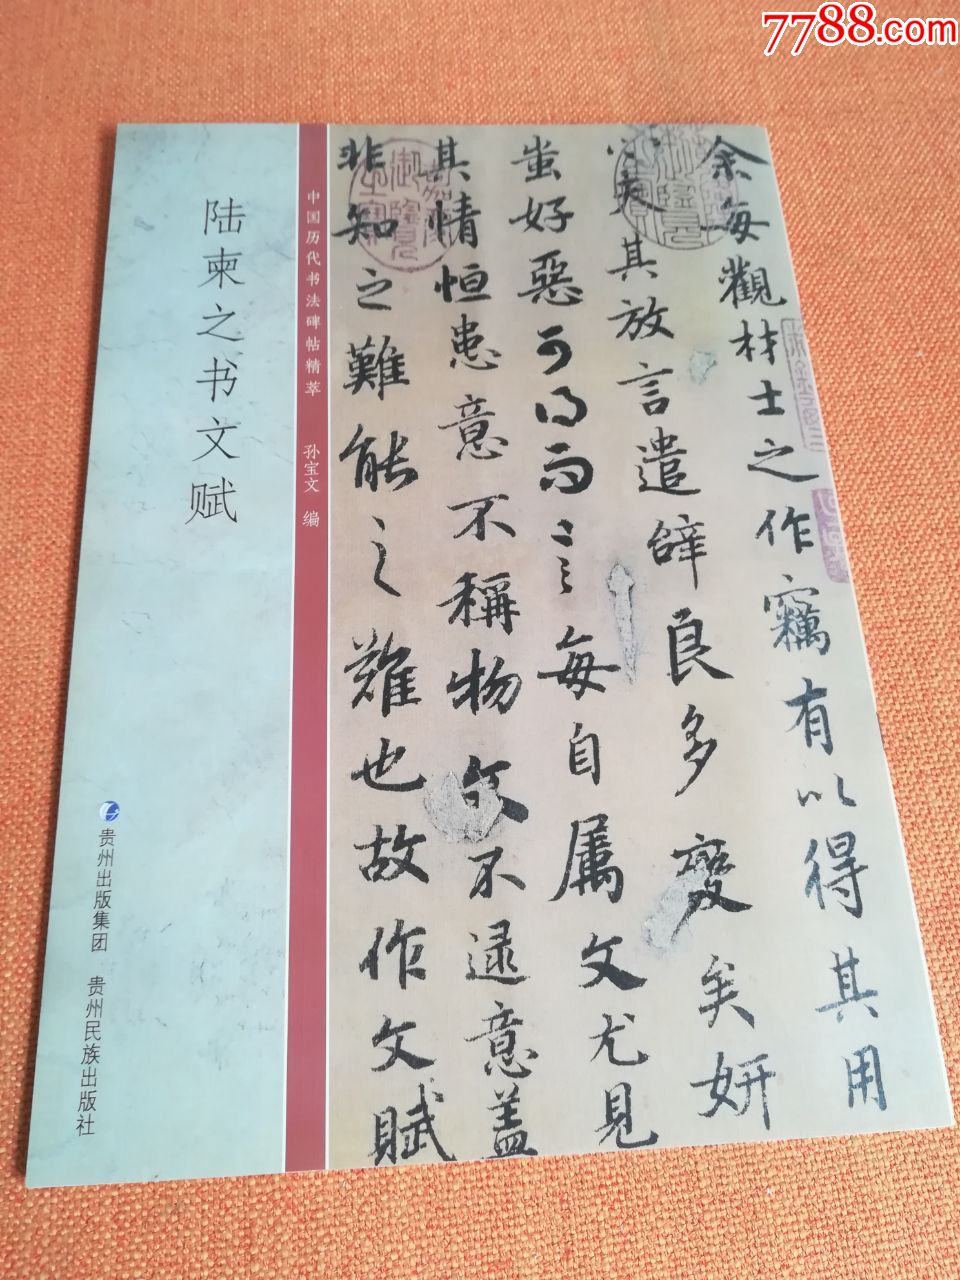 7788.com
陆柬之书文赋
中国历代书法碑帖精萃 孙宝文 编
贵州出版集团 贵州民族出版社
余每觀材士之作竊有以得其用
心夫其放言遣辞良多變矣妍
蚩好惡可得而言每自属文尤見
其情恒患意不稱物文不逮意盖
非知之難能之難也故作文賦